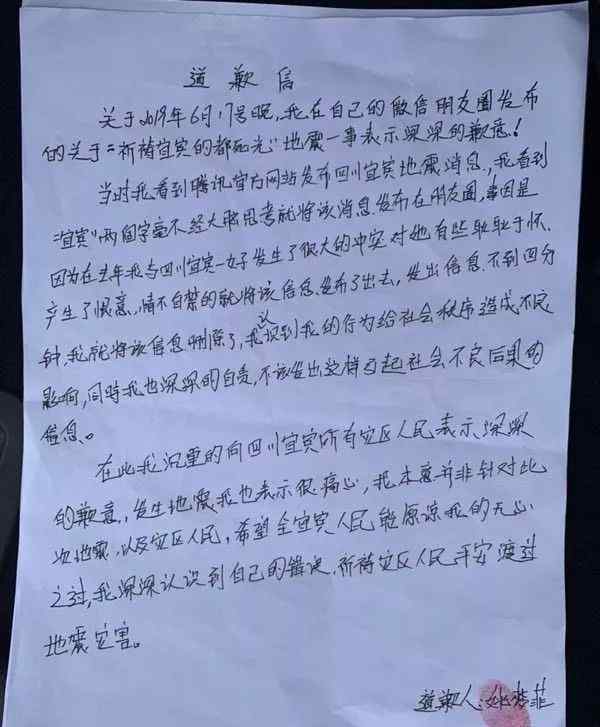 道歉信
关于2019年6月17号晚,我在自己的微信朋友圈发布
的关于“祈祷宜宾的都死光”地震一事表示深深的歉意!
当时我看到腾讯官方网站发布四川宜宾地震消息,我看到
“宜宾”两个字毫不经大脑思考就将该消息发布在朋友圈,事因是
因为在去年我与四川宜宾一女子发生了很大的冲突对她有些耿耿于怀,
产生了恨意,情不自禁的就将该信息发布了出去,发出信息不到四分
钟,我就将该信息删除了,我认识到我的行为给社会秩序造成不良
影响,同时我也深深的自责,不该发出这样引起社会不良后果的
信息。
在此我沉重的向四川宜宾所有灾区人民表示深深
的歉意,发生地震我也表示很痛心,我本意并非针对此
次地震,以及灾区人民,希望全宜宾人民能原谅我的无心
之过,我深深认识到自己的错误,祈祷灾区人民平安渡过
地震灾害。
道歉人: